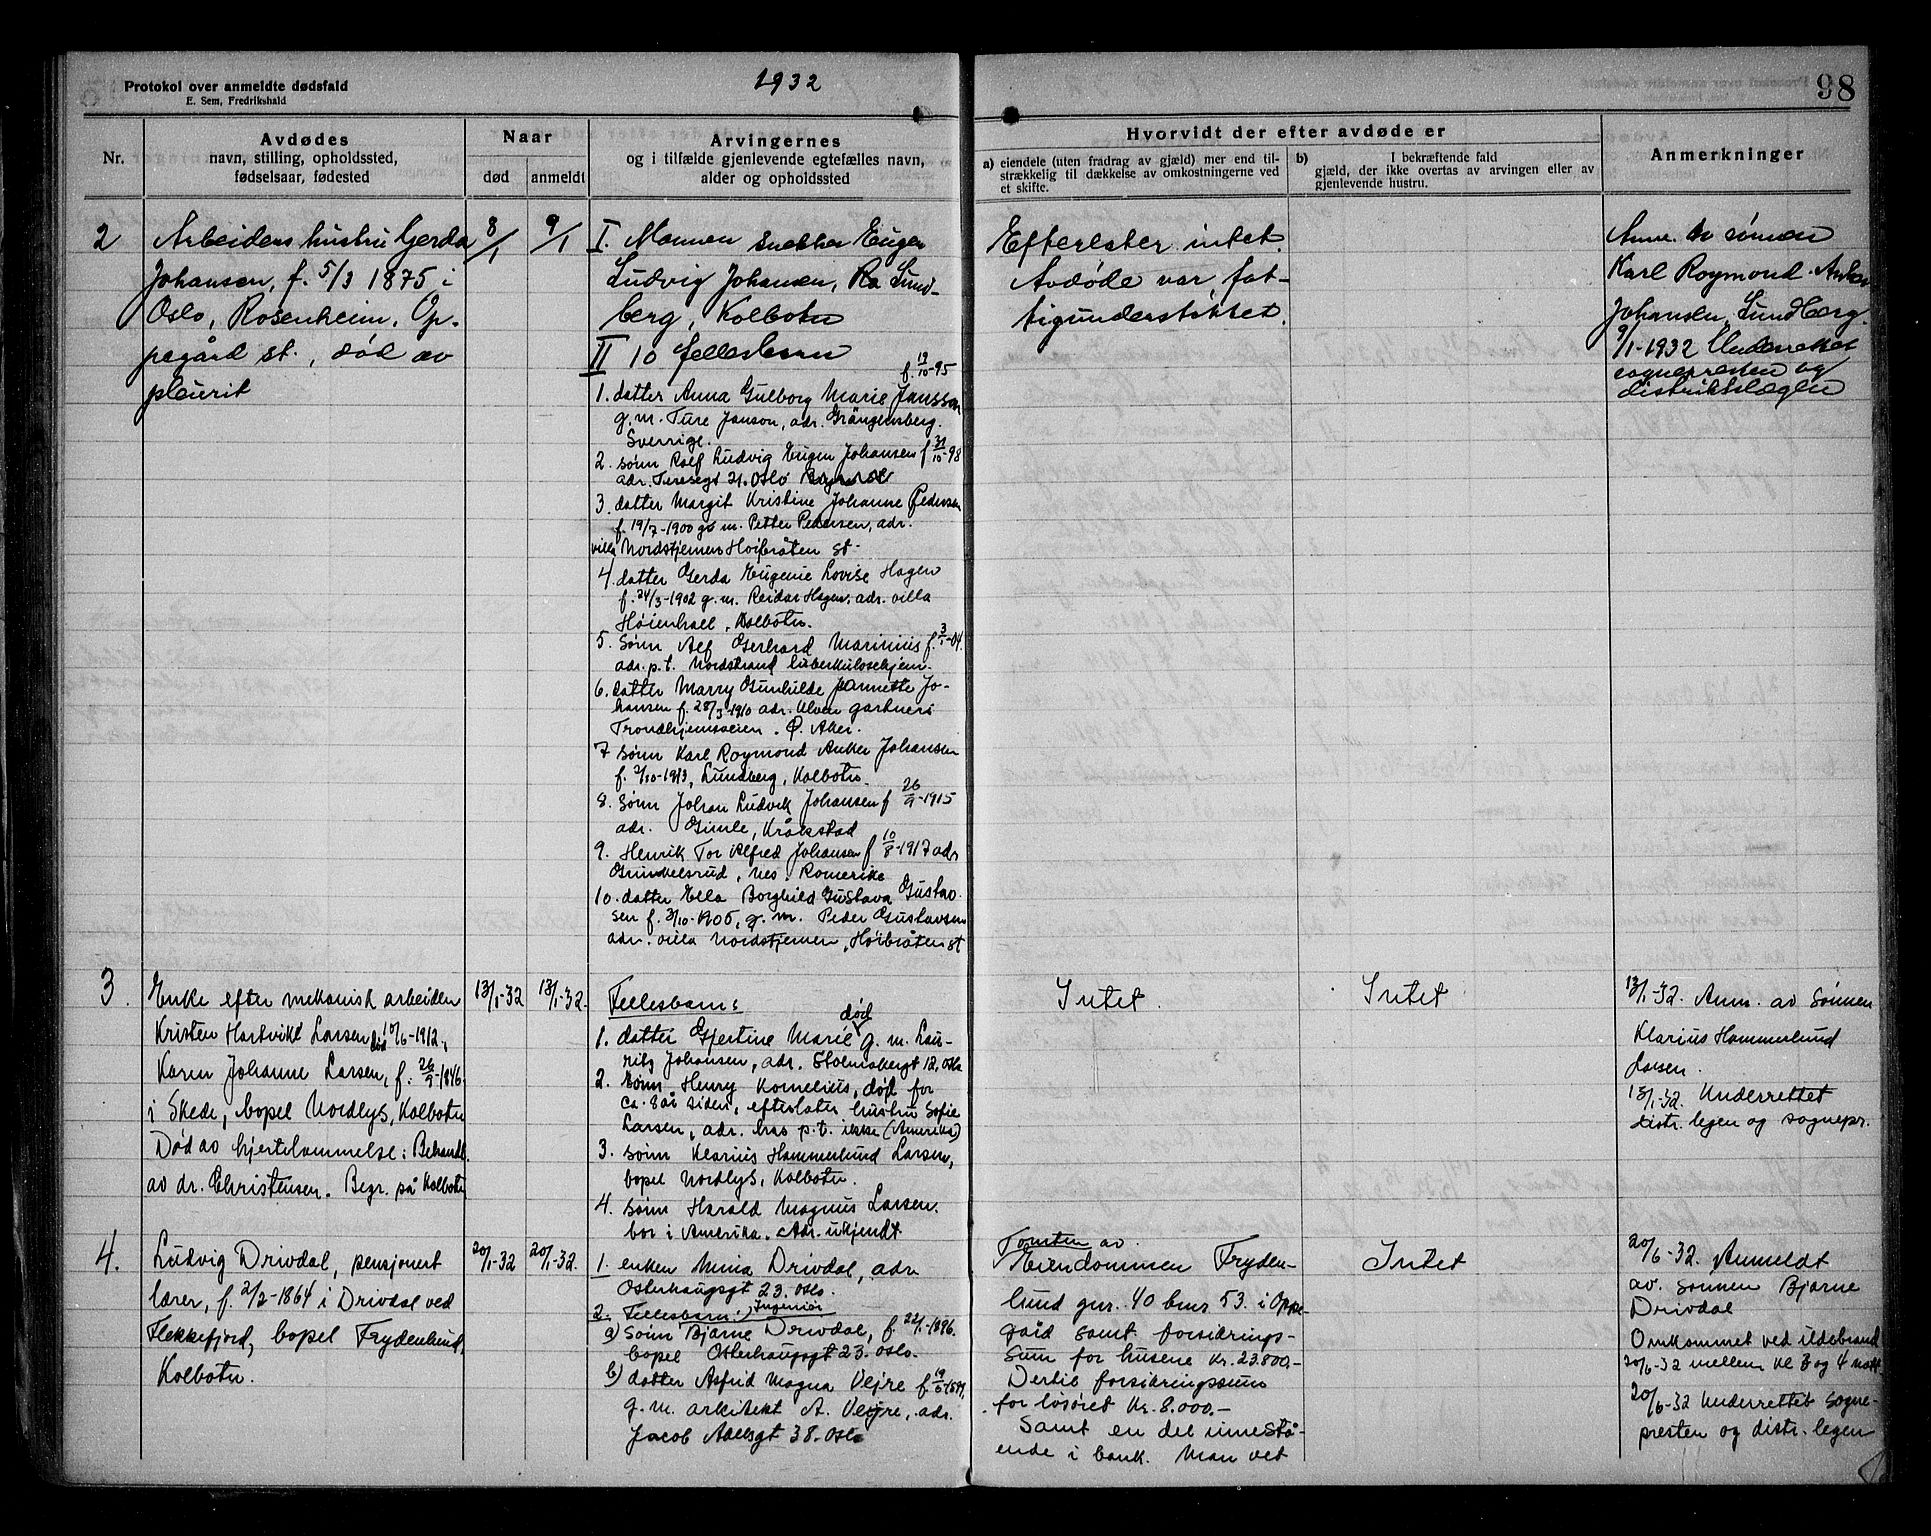 Protokol over anmeldte dødsfald
E. Sem, Fredrikshald
1932
98
Nr.
Avdødes
navn, stilling, opholdssted,
fødselsaar, fødested
Naar
død
anmeldt
Arvingernes
og i tilfælde gjenlevende egtefælles navn,
alder og opholdssted
Hvorvidt der efter avdøde er
a) eiendele (uten fradrag av gjæld) mer end til-
strækkelig til dækkelse av omkostningerne ved
et skifte.
b) I bekræftende fald
gjæld, der ikke overtas av arvingen eller av
gjenlevende hustru.
Anmerkninger
2
Arbeiders hustru Gerda
Johansen, f. 5/3 1875 i
Oslo, Rosenheim, Op-
pegård st., død av
pleurit
8/1
9/1
I. Mannen snekker Eugen
Ludvig Johansen, Lund-
berg, Kolbotn
II 10 fellesbarn
f. 19/10-95
1. datter Anna Gulborg Marie Jansson
g.m. Ture Janson, adr. Grängensberg.
Sverrige.
2. sønn Rolf Ludvig Eugen Johansen f 31/10-98
adr. Teresegt 21. Oslo
3. datter Margit Kristine Johanne Pedersen
f. 19/7-1900 g. m. Petter Pedersen, adr.
villa Nordstjernen Høibråten st.
4. datter Gerda Eugenie Lovise Hagen
f. 24/3-1902 g. m. Reidar Hagen, adr. villa
Høienhall, Kolbotn.
5. Sønn Alf Gerhard Marinius f. 3/1-04.
adr. p.t. Nordstrand tuberkulosehjem.
6. datter Marry Gunhilde Jannette Jo-
hansen f. 28/3-1910 adr. Ulven gartneri
Trondhjemsveien. Ø. Aker.
7 sønn Karl Roymond Anker Johansen
f. 2/10-1913, Lundberg, Kolbotn.
8. sønn Johan Ludvik Johansen f 26/9-1915
adr. Gimle, Kråkstad
9. Henrik Tor Alfred Johansen f 10/8-1917 adr
Grunkelsrud, Nes i Romerike
10. datter Ella Borghild Gustava Gustav-
sen f. 3/10-1905, g. m. Peder Gustavsen
adr. villa Nordstjernen, Høibråten st
Efterlater intet.
Avdøde var fat-
tigunderstøttet.
Anm. av sønnen
Karl Roymond Anker
Johansen, Lundberg.
9/1-1932 Underrettet
sognepresten og
distriktslægen
3.
Enke efter mekanisk arbeider
Kristen Hartvikt Larsen død 10/6-1912.
Karen Johanne Larsen, f. 26/9-1846
i Skede, bopel Nordlys, Kolbotn
Død av hjertelammelse. Behandl.
av dr. Christensen. Begr. på Kolbotn
13/1-32
13/1-32.
Fellesbarn:
1. datter Gjertine Marie død g. m. Lau-
ritz Johansen, adr. Stolmakergt 12, Oslo
2. Sønn Henry Kornelius, død for
ca. 8 år siden, efterlater hustru Sofie
Larsen, adr. has p.t. ikke (Amerika)
3. sønn Klarius Hammerlund Larsen,
bopel Nordlys, Kolbotn.
4. sønn Harald Magnus Larsen.
bor i Amerika. Adr. ukjendt
Intet.
Intet
13/1-32. Anm. av Sønnen
Klarius Hammerlund
Larsen.
13/1-32. Underrettet
distr. legen og sognepr.
4.
Ludvig Drivdal, pensjonert
lærer, f. 2/2-1864 i Drivdal ved
Flekkefjord, bopel Frydenlund,
Kolbotn.
20/1-32
20/1-32.
1. enken Mina Drivdal, adr
Osterhaugsgt 23. Oslo.
2. Fellesbarn:
a) sønn Ingeniør Bjarne Drivdal, f. 22/1-1896.
bopel Osterhaugsgt 23. Oslo.
b) datter Astrid Magna Vejre f 19/6-1899,
g. m. arkitekt A. Vejre, adr.
Jacob Aallsgt 38. Oslo
Tomten av
Eiendommen Fryden-
lund gnr. 40 bnr. 53. i Oppe-
gård samt forsikrings-
sum for husene kr. 23.800.-
Dertil forsikringssum
for løsøret kr. 8.000.-
Samt en del innestå-
ende i bank. Man vet
Intet
20/6-32. Anmeldt
av. sønnen Bjarne
Drivdal
Omkommet ved ildebrand
20/6-32 mellem kl 3 og 4 natt
20/6-32 Underrettet sogne-
presten og distr. legen